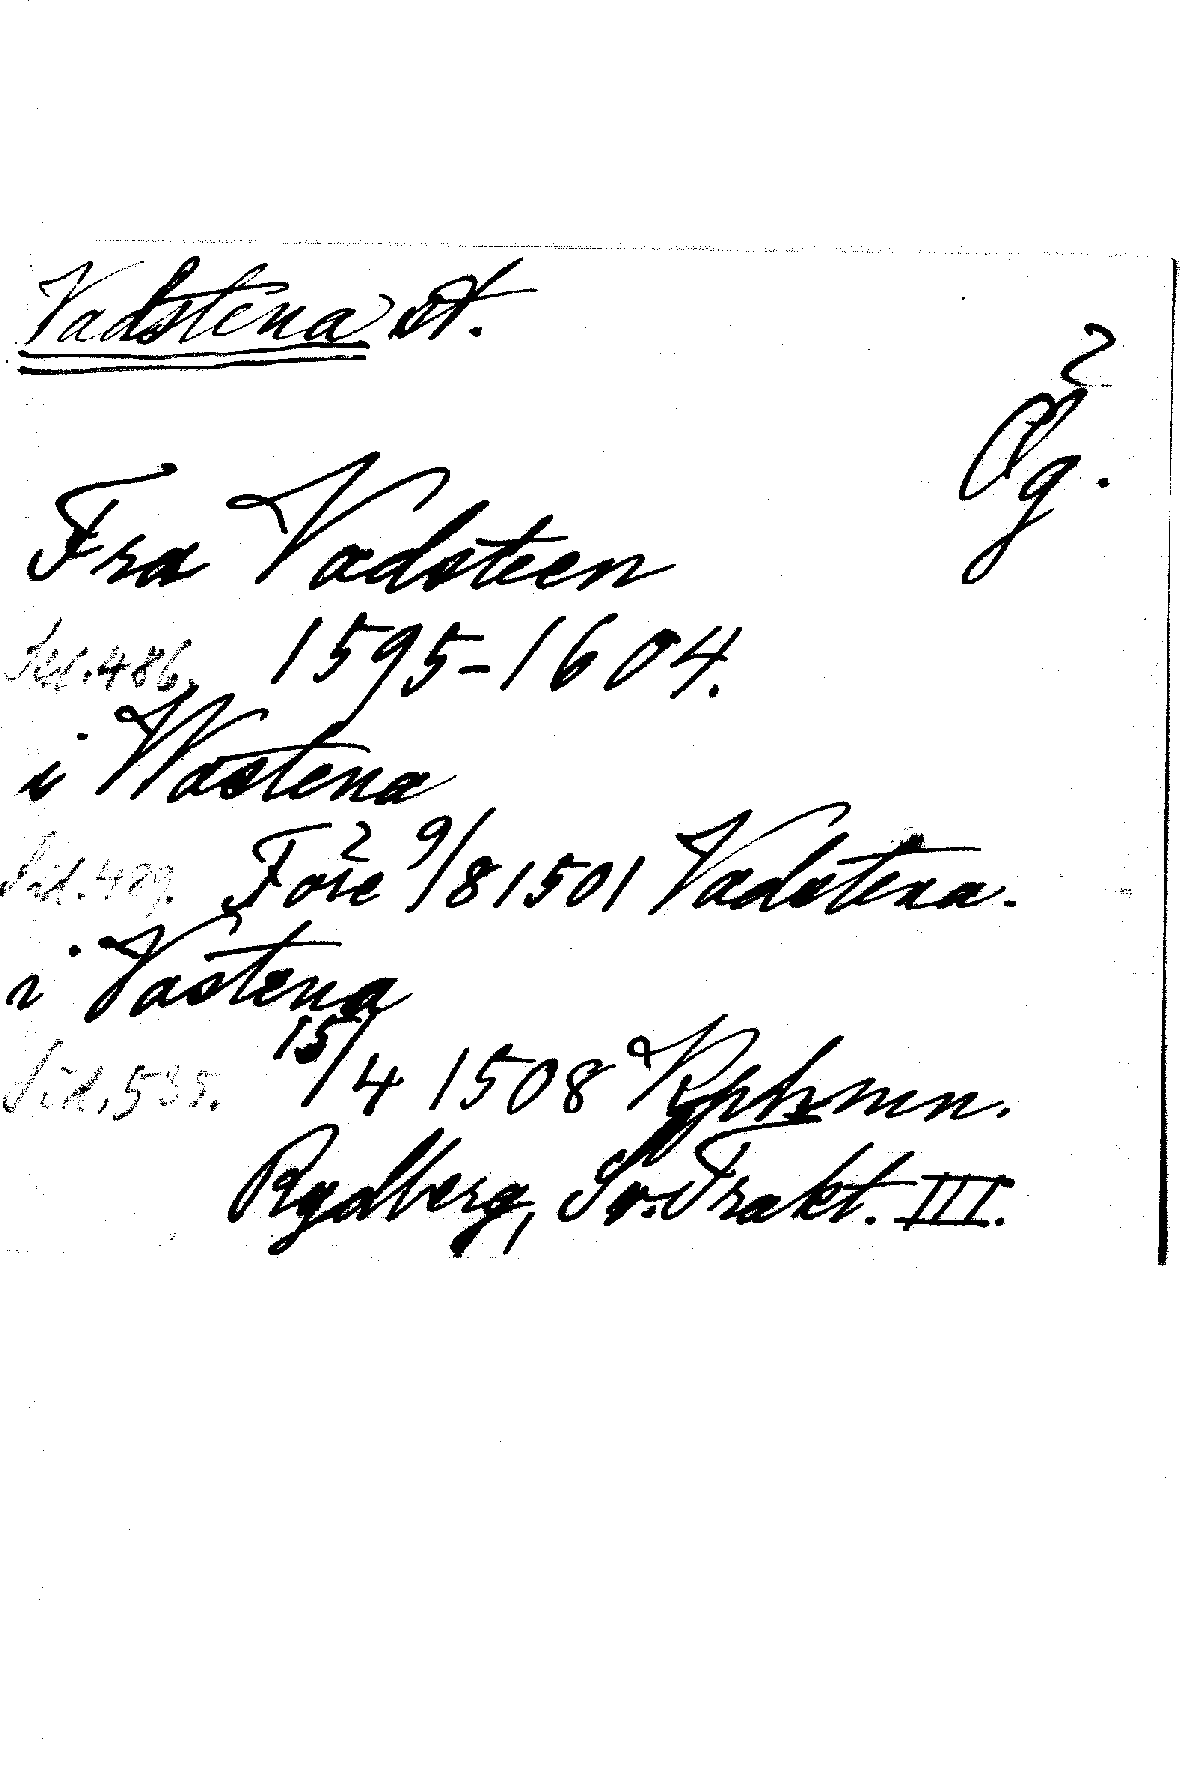 Vadstena st.
Ög.
Fra Vadsteen
Sid. 486. 1595-1604.
i Wastena
Sid. 489. Före 9/8 1501 Vadstena.
i Vastena
Sid. 535. 15/4 1508 Kphmn.
Rydberg, Sv. Trakt. III.